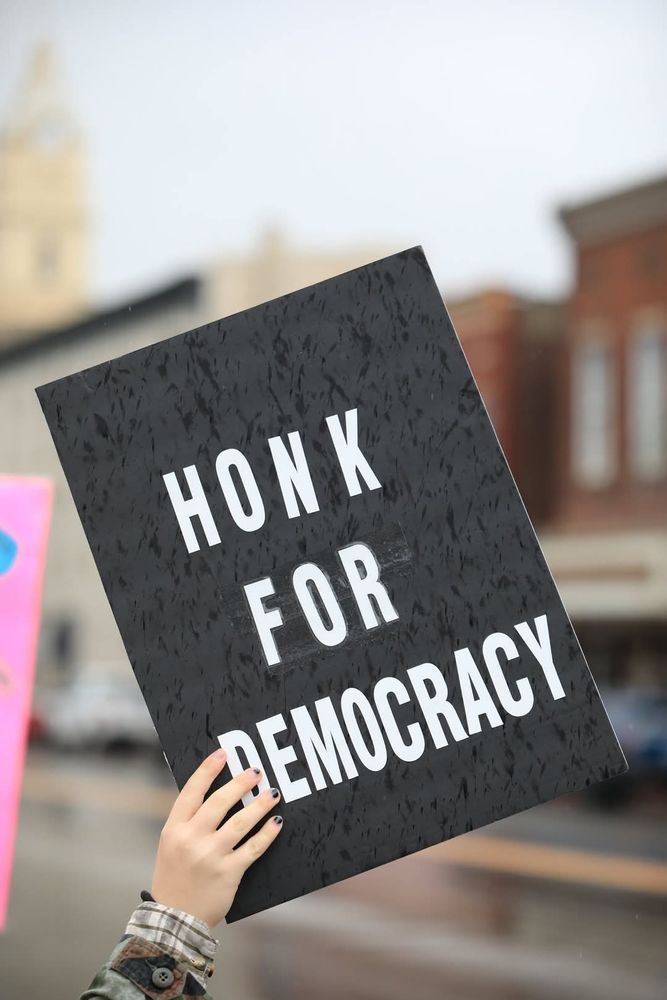 HONK
FOR
DEMOCRACY